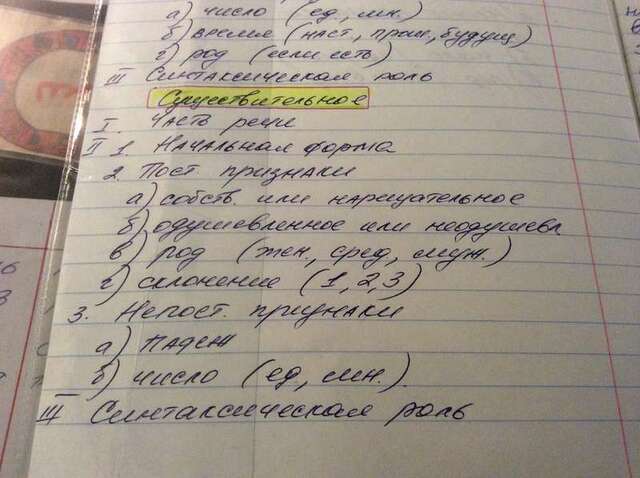 а) число (ед., мн.)
б) время (наст., прош., будущ)
г) род (если есть)
III Синтаксическая роль
Существительное
I. Часть речи
II 1. Начальная форма
2. Пост. признаки
а) собств. или нарицательное
б) одушевленное или неодушевл
в) род (жен., сред., муж.)
г) склонение (1, 2, 3)
3. Непост. признаки
а) падеж
б) число (ед., мн.).
III Синтаксическая роль